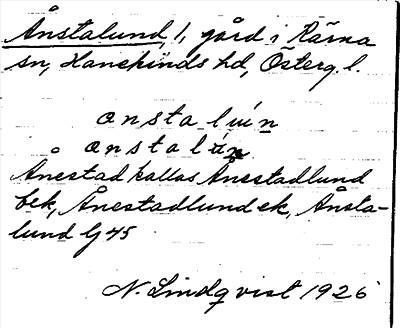 Ånstalund, 1, gård i Kärna
sn, Hanekinds hd, Österg. l.
ɑnstaluín
ɑnstalún
Ånestad kallas Ånestadlund
bek, Ånestadlund ek, Ånsta-
lund Gj 45
N. Lindqvist 1926